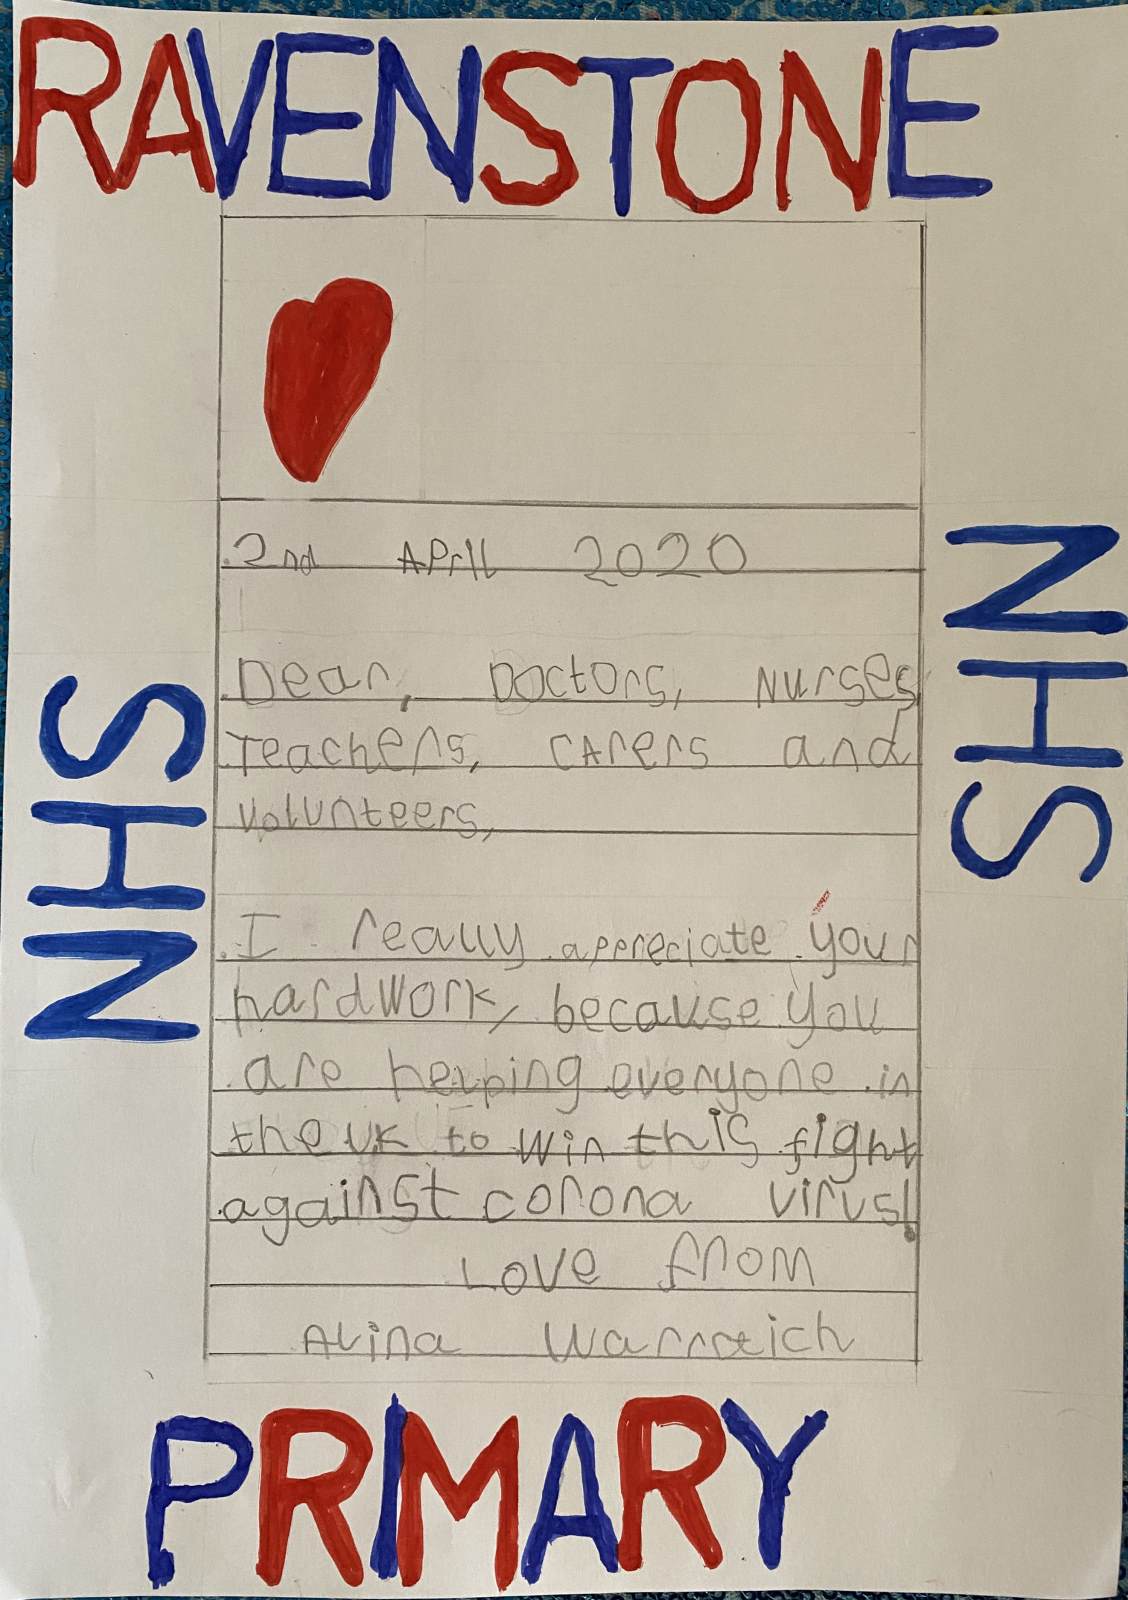 RAVENSTONE
2nd April 2020
Dear, Doctors, Nurses
Teachers, carers and
volunteers,
I really appreciate your
hardwork, because you
are helping everyone in
the UK to win this fight
against corona virus!
Love from
Alina Warraich
NHS
NHS
PRIMARY